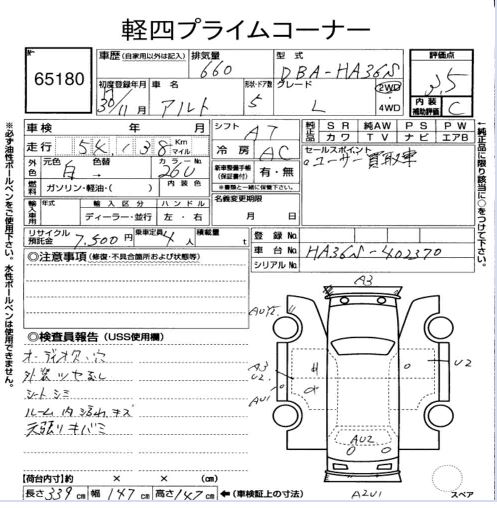 軽四プライムコーナー
No
65180
車歴(自家用以外は記入)
排気量
660
型式
DBA-HA36S
評価点
3.5
初度登録年月
30年11月
車名
アルト
形状・ドア数
5
グレード
L
2WD
4WD
内装補助評価
C
車検 年 月
シフト
AT
純正品
SR 純AW PS PW
カワ TV ナビ エアB
走行
54,138
Km
マイル
冷房
AC
セールスポイント
ユーザー買取車
外色
元色
白→
色替
カラーNo.
26U
新車整備手帳(保証書付)
有・無
※書類と一緒に保管下さい。
燃料
ガソリン・軽油・( )
内装色
輸入車用
年式
輸入区分
ディーラー・並行
ハンドル
左・右
名義変更期限
月 日
リサイクル預託金
7,500円
乗車定員
4人
積載量
t
登録No
車台No
HA36S-402370
シリアルNo
◎注意事項(修復・不具合箇所および状態等)
◎検査員報告(USS使用欄)
オーディオ欠 穴
外装ツヤ無し
シートシミ
ルーム内汚れ、キズ
天張りキバミ
A3
A3
U2
AU1
U2
AU2
A2U1
【荷台内寸】約 × × (cm)
長さ339cm 幅147cm 高さ147cm ←(車検証上の寸法)
スペア
※必ず油性ボールペンをご使用下さい。水性ボールペンは使用できません。
↑純正品に限り該当に○をつけて下さい。